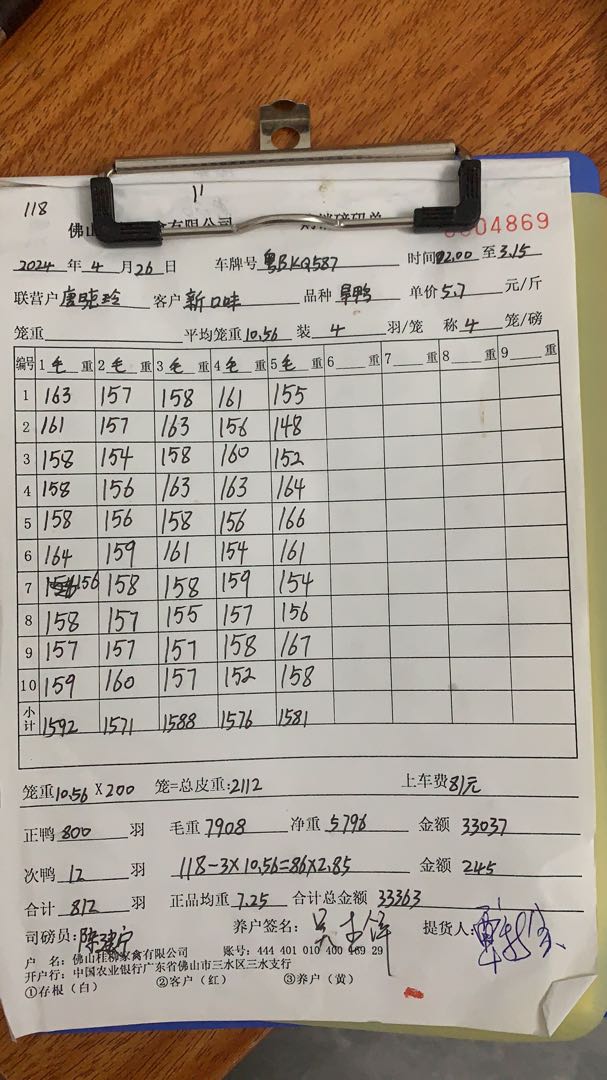 118 11
佛山 禽有限公司 磅码单 04869
2024 年 4 月 26 日 车牌号 粤BKQ587 时间 02.00 至 3.15
联营户 客户 新口味 品种 旱鸭 单价 5.7 元/斤
笼重 平均笼重 10.56 装 4 羽/笼 称 4 笼/磅
编号 1 毛 重 2 毛 重 3 毛 重 4 毛 重 5 毛 重 6 重 7 重 8 重 9 重
1 163 157 158 161 155
2 161 157 163 156 148
3 158 154 158 160 152
4 158 156 163 163 164
5 158 156 158 156 166
6 164 159 161 154 161
7 156 158 158 159 154
8 158 157 155 157 156
9 157 157 157 158 167
10 159 160 157 152 158
小计 1592 1571 1588 1576 1581
笼重 10.56 X 200 笼=总皮重: 2112 上车费 81元
正鸭 800 羽 毛重 7908 净重 5796 金额 33037
次鸭 12 羽 118-3X10.56=86X2.85 金额 245
合计 812 羽 正品均重 7.25 合计总金额 33363
司磅员: 陈建宁 养户签名: 提货人:
户 名: 佛山桂柳家禽有限公司 账号: 444 401 010 400 469 29
开户行: 中国农业银行广东省佛山市三水区三水支行
①存根（白） ②客户（红） ③养户（黄）